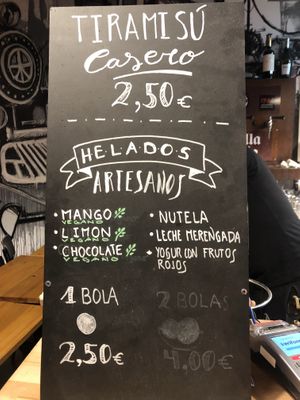 TIRAMISÚ
Casero
2,50€
HELADOS
ARTESANOS
• MANGO
VEGANO
• LIMON
VEGANO
• CHOCOLATE
VEGANO
• NUTELA
• LECHE MERENGADA
• YOGUR CON FRUTOS
ROJOS
1 BOLA
2,50€
2 BOLAS
4.00€